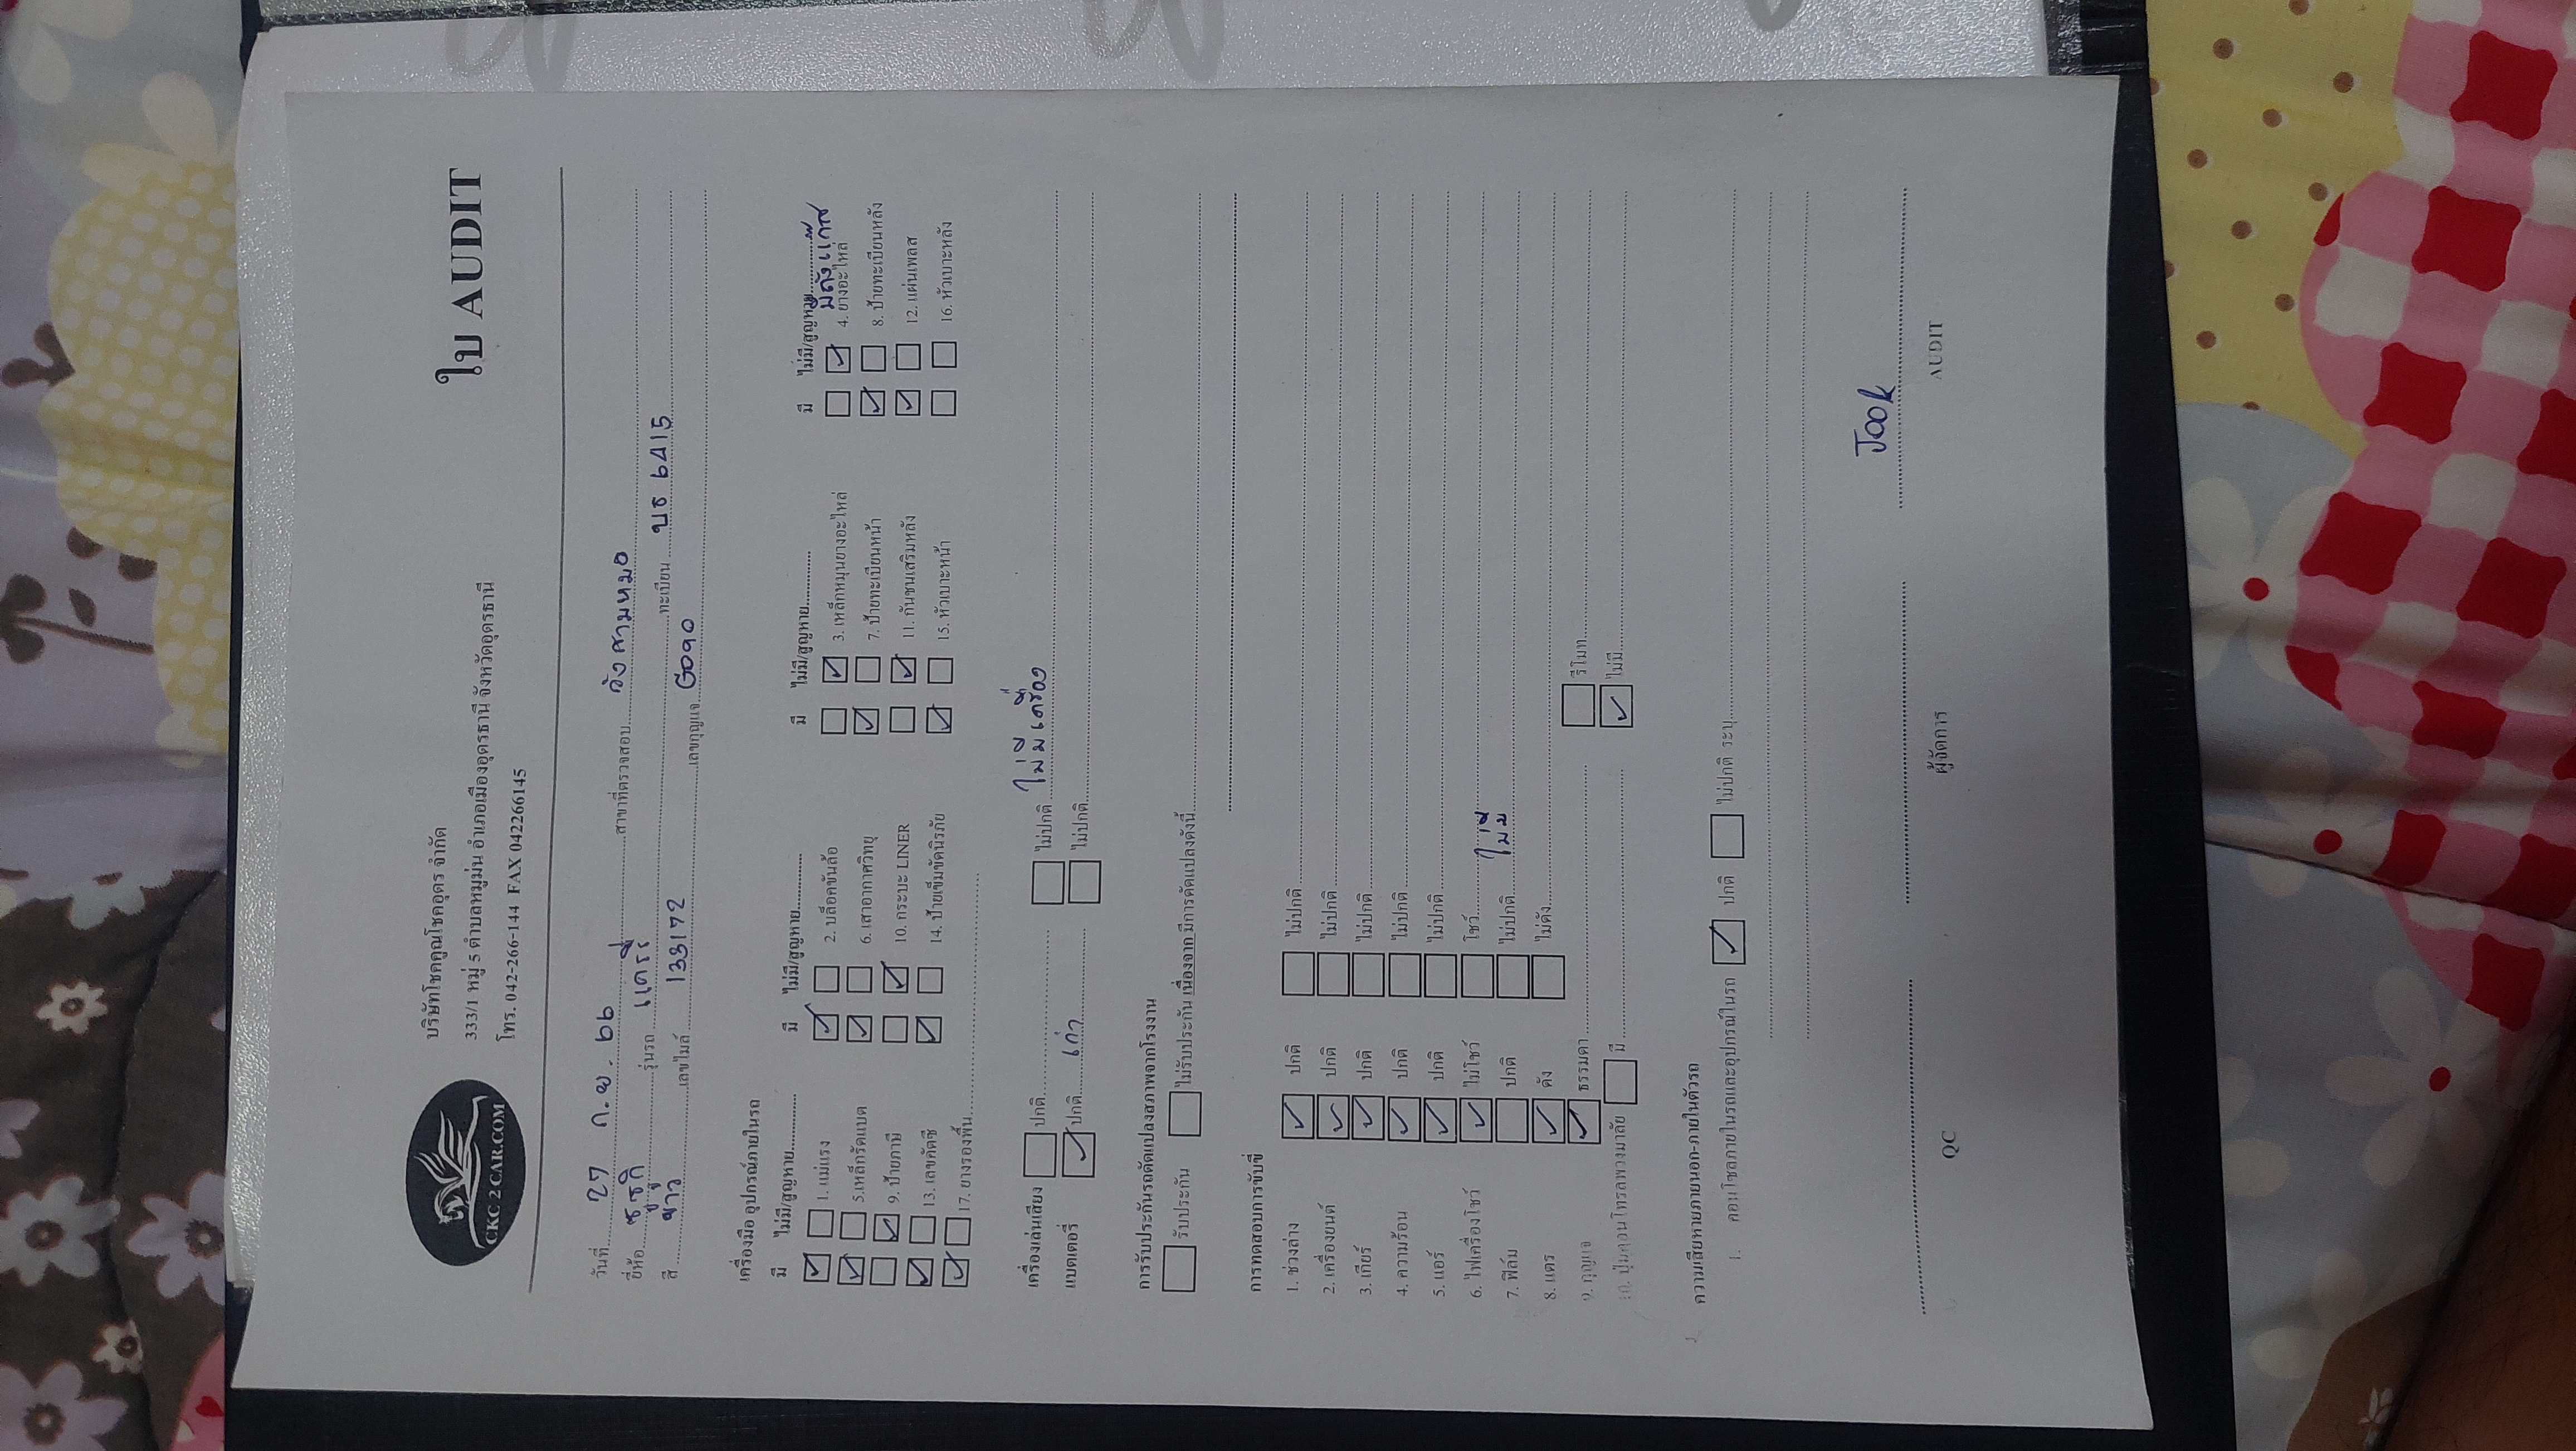 CKC 2 CAR.COM
บริษัทโชคคูณโชคอุดร จำกัด
333/1 หมู่ 5 ตำบลหมูม่น อำเภอเมืองอุดรธานี จังหวัดอุดรธานี
โทร. 042-266-144 FAX 042266145
ใบ AUDIT
วันที่ 27 ก.ย. 66 สาขาที่ตรวจสอบ วังสามหมอ
ยี่ห้อ ซูซูกิ รุ่นรถ แครรี่ ทะเบียน บธ 6415
สี ขาว เลขไมล์ 133172 เลขกุญแจ
เครื่องมือ อุปกรณ์ภายในรถ
มี ไม่มี/สูญหาย มี ไม่มี/สูญหาย มี ไม่มี/สูญหาย มี ไม่มี/สูญหาย
มีถังแก๊ส
☑ ☐ 1. แม่แรง ☑ ☐ 2. บล็อคขันล้อ ☐ ☑ 3. เหล็กหมุนยางอะไหล่ ☐ ☑ 4. ยางอะไหล่
☑ ☐ 5.เหล็กรัดแบต ☑ ☐ 6. เสาอากาศวิทยุ ☑ ☐ 7. ป้ายทะเบียนหน้า ☑ ☐ 8. ป้ายทะเบียนหลัง
☐ ☑ 9. ป้ายภาษี ☐ ☑ 10. กระบะ LINER ☐ ☑ 11. กันชนเสริมหลัง ☑ ☐ 12. แผ่นเพลส
☑ ☐ 13. เลขคัตซี ☑ ☐ 14. ป้ายเข็มขัดนิรภัย ☑ ☐ 15. หัวเบาะหน้า ☐ ☐ 16. หัวเบาะหลัง
☑ ☐ 17. ยางรองพื้น
เครื่องเล่นเสียง ☐ ปกติ ☐ ไม่ปกติ ไม่มีเครื่อง
แบตเตอรี่ ☑ ปกติ เก่า ☐ ไม่ปกติ
การรับประกันรถดัดแปลงสภาพจากโรงงาน
☐ รับประกัน ☐ ไม่รับประกัน เนื่องจาก มีการดัดแปลงดังนี้
การทดสอบการขับขี่
1. ช่วงล่าง ☑ ปกติ ☐ ไม่ปกติ
2. เครื่องยนต์ ☑ ปกติ ☐ ไม่ปกติ
3. เกียร์ ☑ ปกติ ☐ ไม่ปกติ
4. ความร้อน ☑ ปกติ ☐ ไม่ปกติ
5. แอร์ ☑ ปกติ ☐ ไม่ปกติ
6. ไฟเครื่องโชว์ ☑ ไม่โชว์ ☐ โชว์
7. ฟิล์ม ☐ ปกติ ☐ ไม่ปกติ ไม่มี
8. แตร ☑ ดัง ☐ ไม่ดัง
9. กุญแจ ☑ ธรรมดา ☐ รีโมท
10. ปุ่มคอนโทรลพวงมาลัย ☐ มี ☑ ไม่มี
ความเสียหายภายนอก-ภายในตัวรถ
1. คอนโซลภายในรถและอุปกรณ์ในรถ ☑ ปกติ ☐ ไม่ปกติ ระบุ
Jook
QC ผู้จัดการ AUDIT